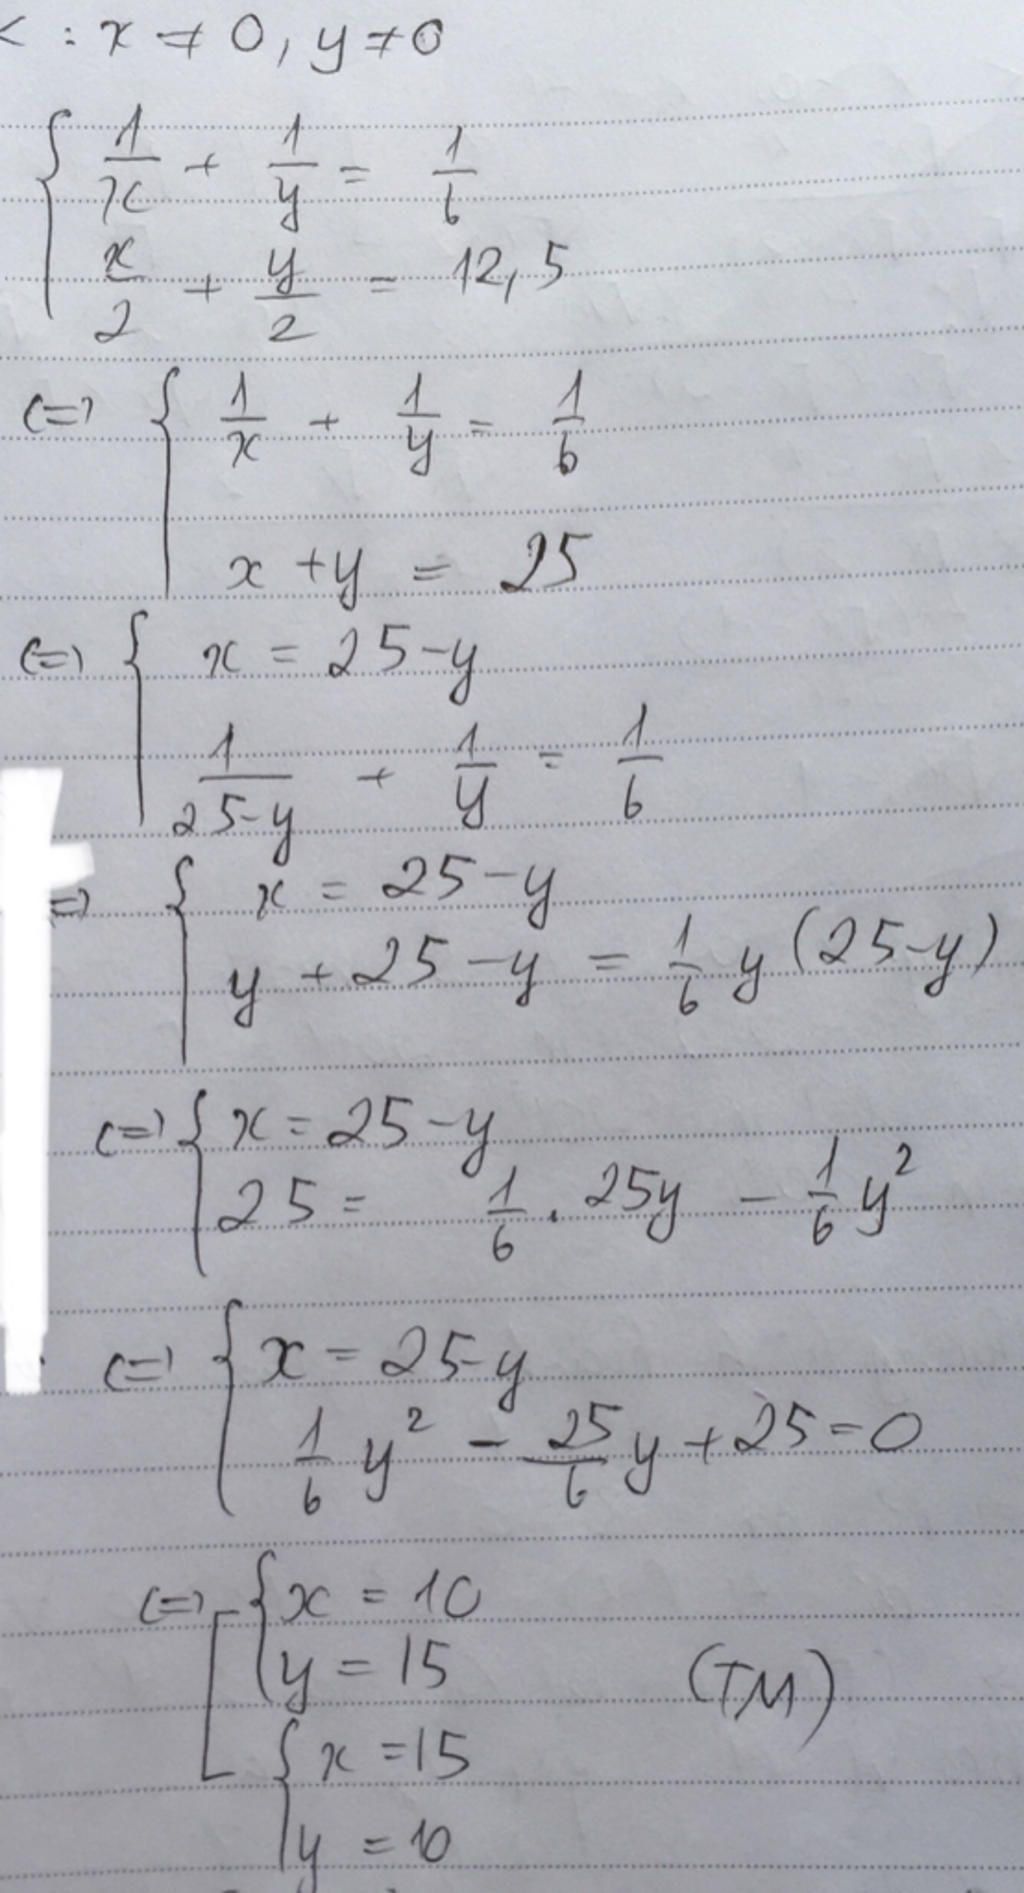 : x ≠ 0, y ≠ 0
{ 1/x + 1/y = 1/6
x/2 + y/2 = 12,5
<=> { 1/x + 1/y = 1/6
x + y = 25
<=> { x = 25 - y
1/(25-y) + 1/y = 1/6
=> { x = 25 - y
y + 25 - y = 1/6 y (25-y)
<=> { x = 25 - y
25 = 1/6 . 25y - 1/6 y²
<=> { x = 25 - y
1/6 y² - 25/6 y + 25 = 0
<=> [ { x = 10
y = 15 (TM)
{ x = 15
y = 10